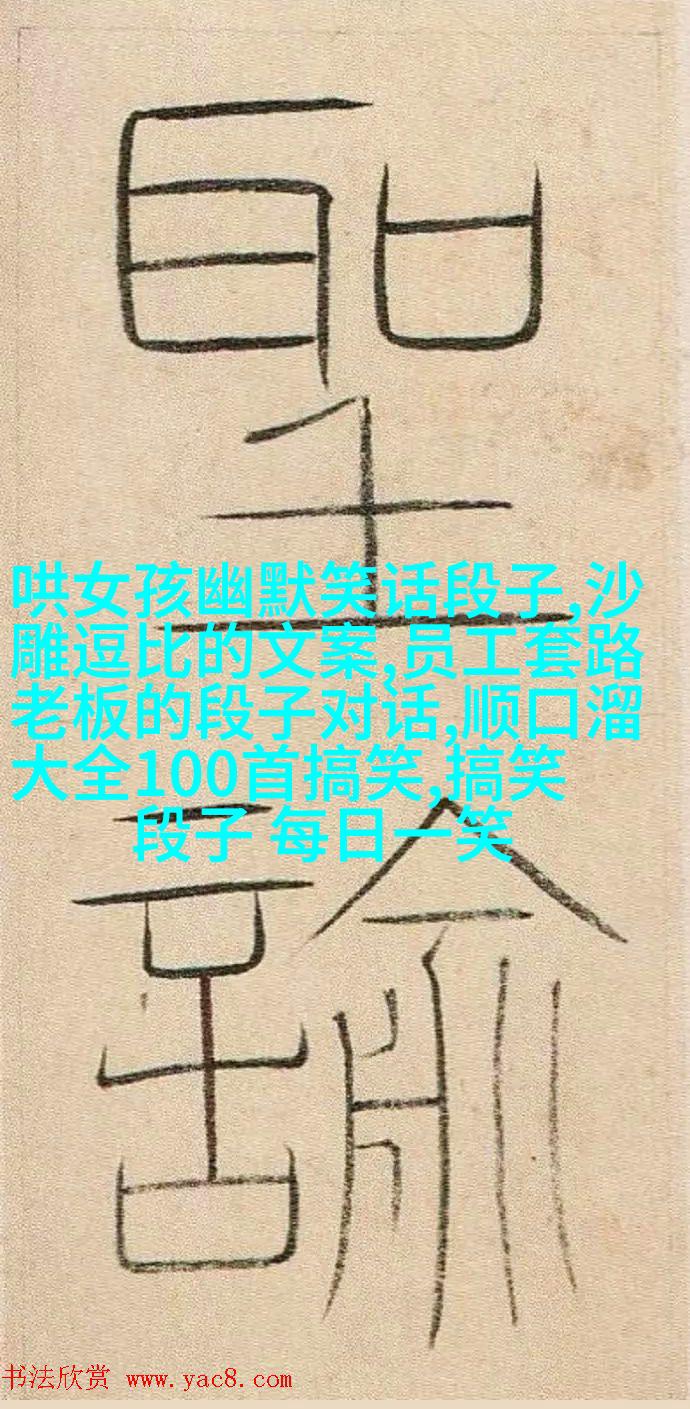 聖
諭
哄女孩幽默笑话段子,沙
雕逗比的文案,员工套路
老板的段子对话,顺口溜
大全100首搞笑,搞笑
段子 每日一笑
书法欣赏 www.yac8.com